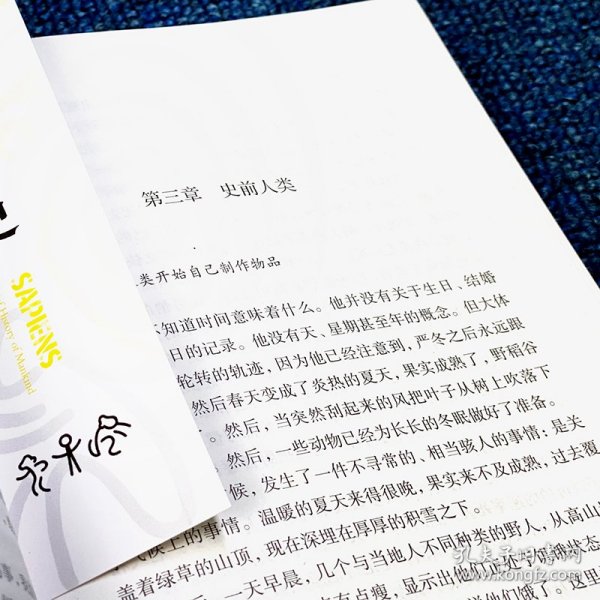 第三章 史前人类
类开始自己制作物品
知道时间意味着什么。他并没有关于生日、结婚
日的记录。他没有天、星期甚至年的概念。但大体
轮转的轨迹，因为他已经注意到，严冬之后永远跟
然后春天变成了炎热的夏天，果实成熟了，野稻谷
。然后，当突然刮起来的风把叶子从树上吹落下
。然后，一些动物已经为长长的冬眠做好了准备。
候，发生了一件不寻常的、相当骇人的事情；是关
气候上的事情。温暖的夏天来得很晚，果实来不及成熟，过去覆
盖着绿草的山顶，现在深埋在厚厚的积雪之下。
一天早晨，几个与当地人不同种类的野人，从高山
有点瘦，显示出他们
SAPIENS
History of Mankind
孔夫子旧书网
www.kongfz.com